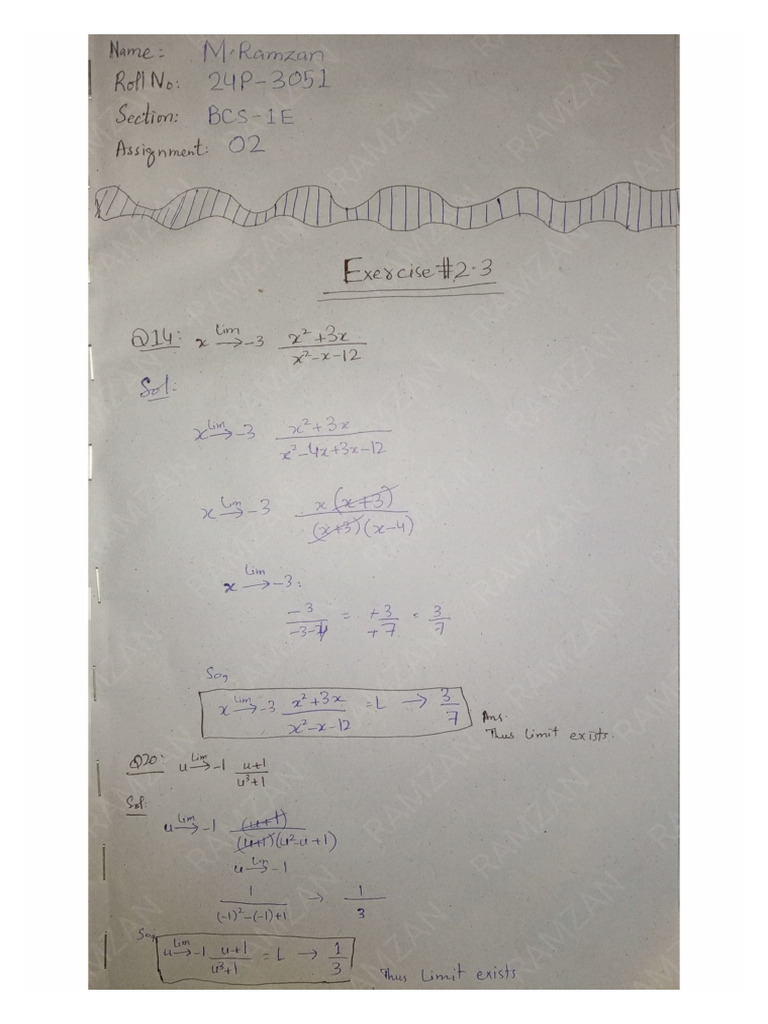 Name: M.Ramzan
Roll No: 24P-3051
Section: BCS-1E
Assignment: 02
Exercise #2.3
Q14: Lim x→-3 x²+3x / x²-x-12
Sol:
Lim x→-3 x²+3x / x²-4x+3x-12
Lim x→-3 x(x+3) / (x+3)(x-4)
Lim x→-3:
-3 / -3-4 = +3 / +7 = 3/7
So,
Lim x→-3 x²+3x / x²-x-12 = L → 3/7 Ans.
Thus limit exists.
Q20: Lim u→-1 u+1 / u³+1
Sol:
Lim u→-1 (u+1) / (u+1)(u²-u+1)
Lim u→-1
1 / (-1)²-(-1)+1 → 1/3
So,
Lim u→-1 u+1 / u³+1 = L → 1/3 Thus Limit exists
RAMZAN